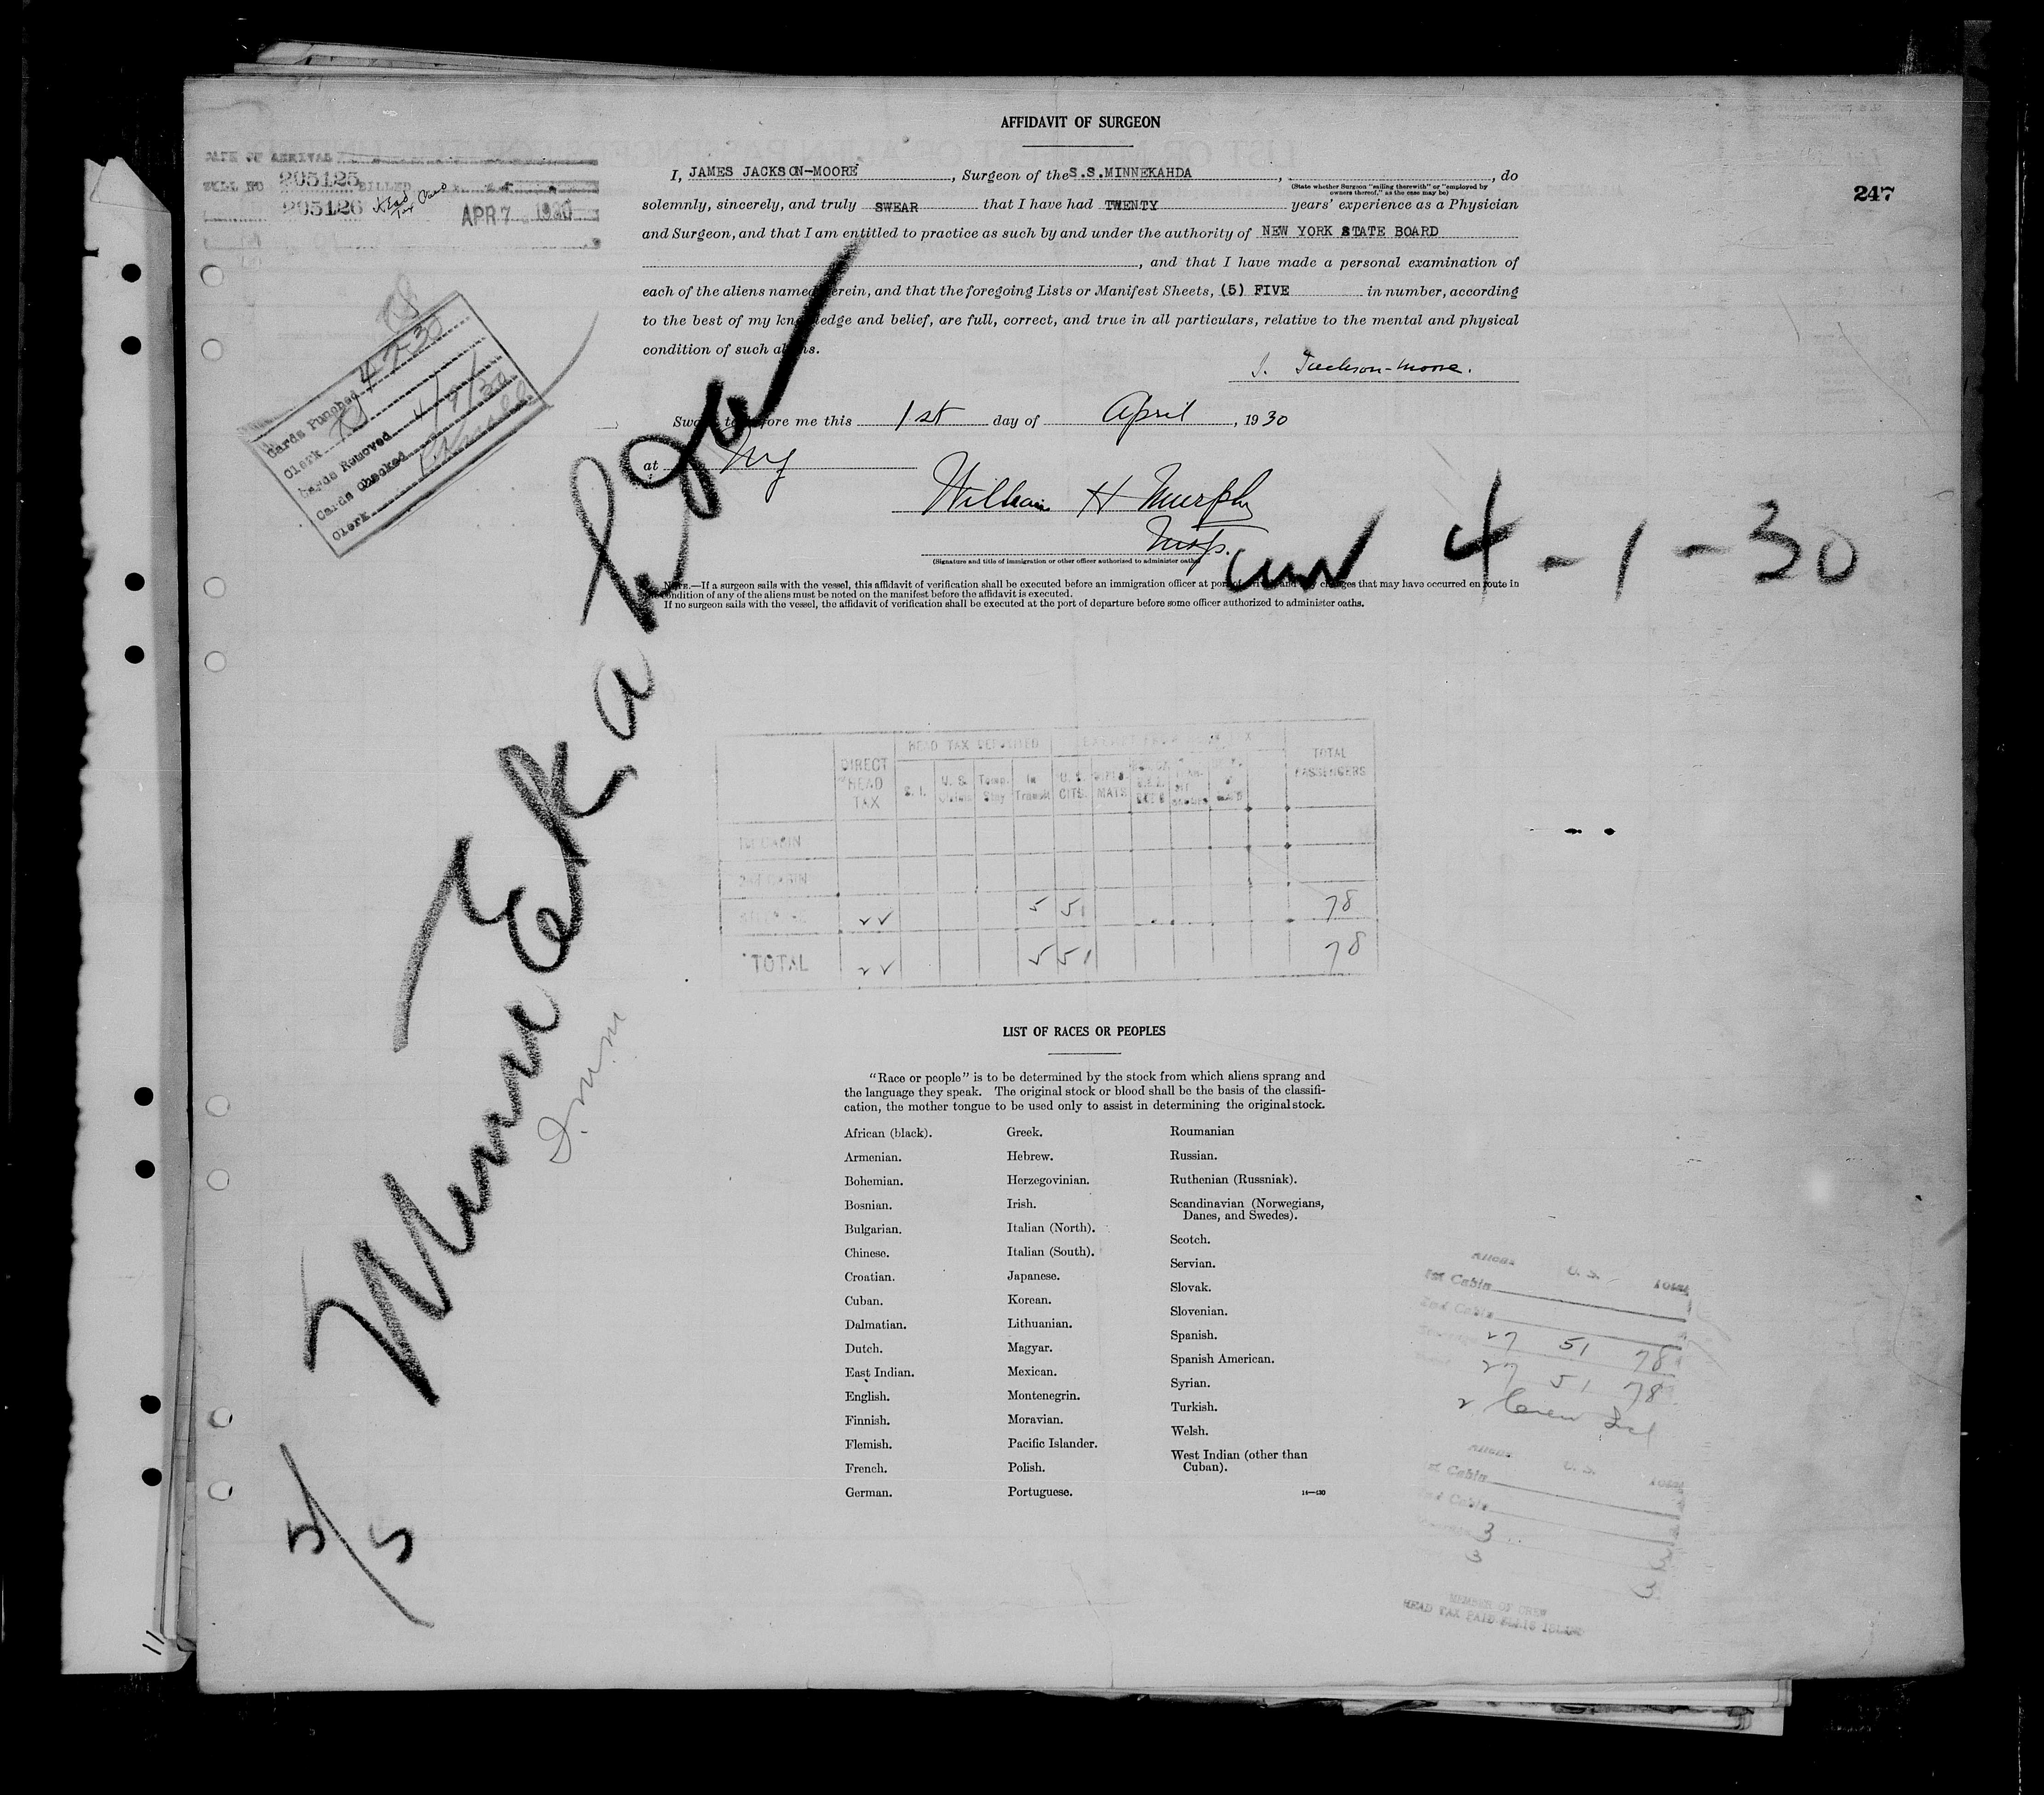 AFFIDAVIT OF SURGEON
247
DATE OF ARRIVAL
BILL NO 205125 BILLED
205126 Head Tax Paid
APR 7 1930
I, JAMES JACKSON-MOORE, Surgeon of the S.S.MINNEKAHDA, , do
(State whether Surgeon "sailing therewith" or "employed by owners thereof," as the case may be)
solemnly, sincerely, and truly SWEAR that I have had TWENTY years' experience as a Physician
and Surgeon, and that I am entitled to practice as such by and under the authority of NEW YORK STATE BOARD
, and that I have made a personal examination of
each of the aliens named herein, and that the foregoing Lists or Manifest Sheets, (5) FIVE in number, according
to the best of my knowledge and belief, are full, correct, and true in all particulars, relative to the mental and physical
condition of such aliens.
J. Jackson-Moore.
Sworn to before me this 1st day of April, 1930
at NY
William H Murphy
Insp.
(Signature and title of immigration or other officer authorized to administer oaths)
4-1-30
NOTE.—If a surgeon sails with the vessel, this affidavit of verification shall be executed before an immigration officer at port of arrival, and any changes that may have occurred en route in
the condition of any of the aliens must be noted on the manifest before the affidavit is executed.
If no surgeon sails with the vessel, the affidavit of verification shall be executed at the port of departure before some officer authorized to administer oaths.
Cards Punched 4-7-30
Clerk
Cards Removed 4/9/30
Cards Checked
Clerk
MinneKahda
5/5
DIRECT HEAD TAX
HEAD TAX DEPOSITED
EXEMPT FROM HEAD TAX
TOTAL PASSENGERS
S. I.
U. S. Citizen
Temp. Stay
In Transit
U. S. CITS.
DIPLOMATS
1st CABIN
2nd CABIN
STEERAGE 22 5 51 78
TOTAL 22 5 51 78
LIST OF RACES OR PEOPLES
"Race or people" is to be determined by the stock from which aliens sprang and
the language they speak. The original stock or blood shall be the basis of the classifi-
cation, the mother tongue to be used only to assist in determining the original stock.
African (black).
Armenian.
Bohemian.
Bosnian.
Bulgarian.
Chinese.
Croatian.
Cuban.
Dalmatian.
Dutch.
East Indian.
English.
Finnish.
Flemish.
French.
German.
Greek.
Hebrew.
Herzegovinian.
Irish.
Italian (North).
Italian (South).
Japanese.
Korean.
Lithuanian.
Magyar.
Mexican.
Montenegrin.
Moravian.
Pacific Islander.
Polish.
Portuguese.
Roumanian
Russian.
Ruthenian (Russniak).
Scandinavian (Norwegians,
Danes, and Swedes).
Scotch.
Servian.
Slovak.
Slovenian.
Spanish.
Spanish American.
Syrian.
Turkish.
Welsh.
West Indian (other than
Cuban).
14—430
Aliens U. S. Total
1st Cabin
2nd Cabin
27 51 78
27 51 78
2 Crew Incl
Aliens U. S. Total
1st Cabin
2nd Cabin
3 3
3 3
MEMBER OF CREW
HEAD TAX PAID ELLIS ISLAND
11